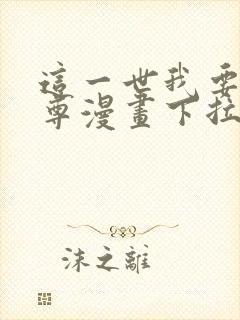 這一世我要
尊漫畫下拉
沫之離